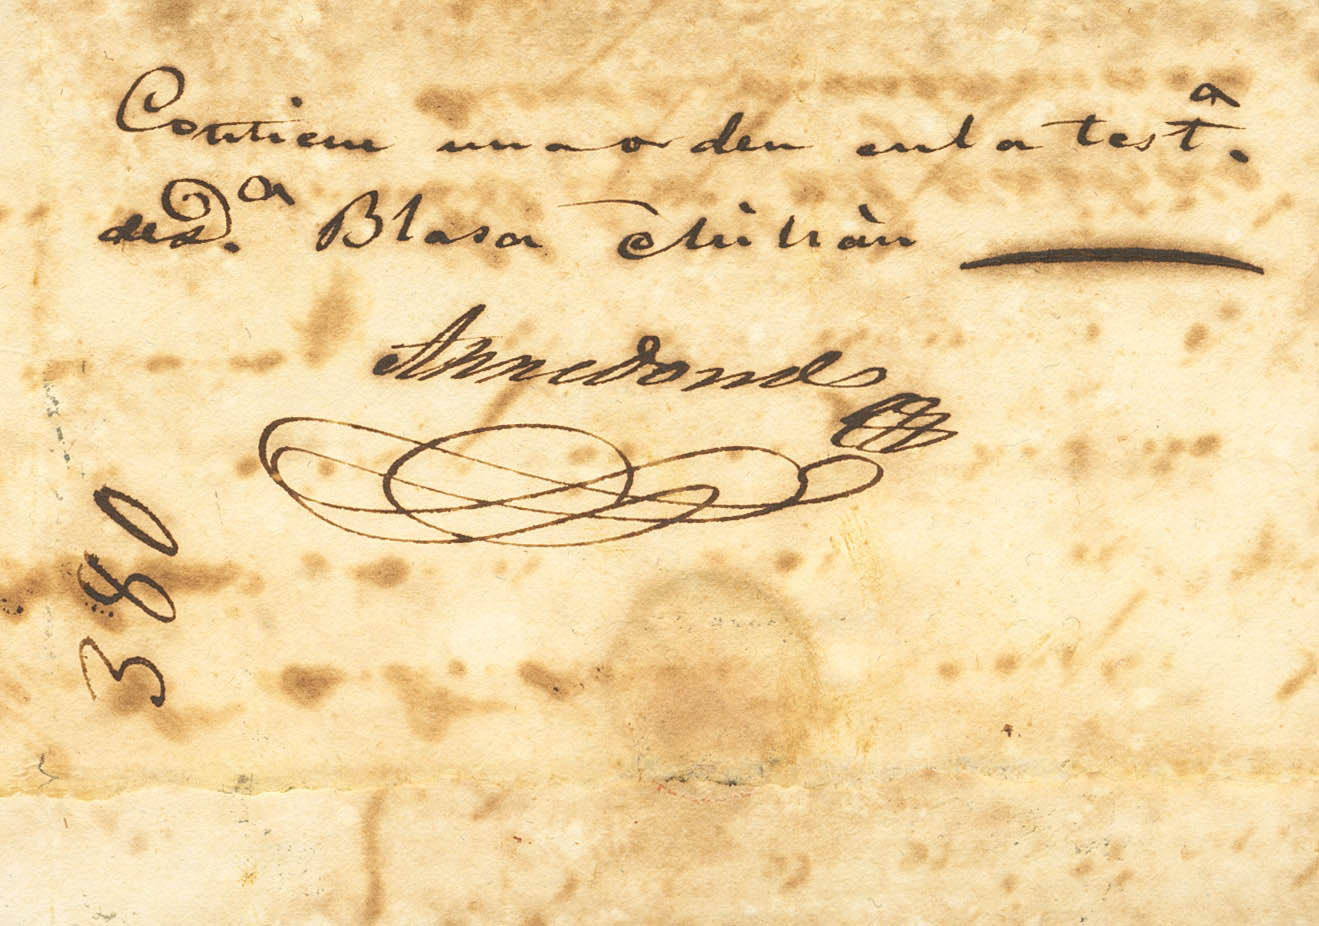 Contiene una orden en la testª.
de Dª. Blasa Chirián
Arredondo
380